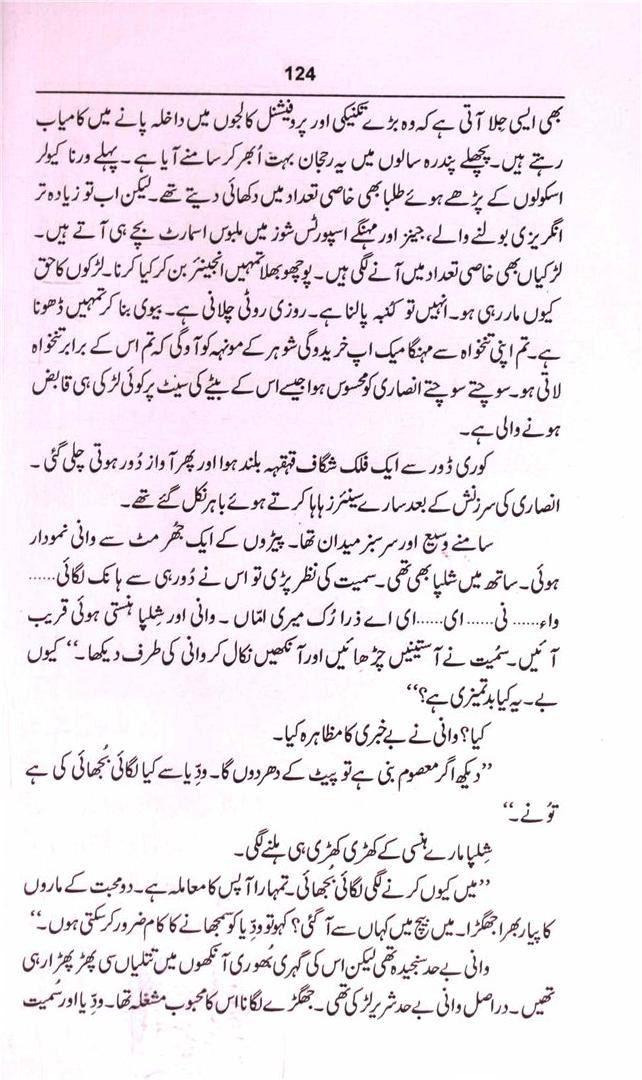 124
بھی ایسی جِلا آتی ہے کہ وہ بڑے تکنیکی اور پروفیشنل کالجوں میں داخلہ پانے میں کامیاب
رہتے ہیں۔ پچھلے پندرہ سالوں میں یہ رجحان بہت اُبھر کر سامنے آیا ہے۔ پہلے ورنا کیولر
اسکولوں کے پڑھے ہوئے طلبا بھی خاصی تعداد میں دکھائی دیتے تھے۔ لیکن اب تو زیادہ تر
انگریزی بولنے والے، جینز اور مہنگے اسپورٹس شوز میں ملبوس اسمارٹ بچے ہی آتے ہیں۔
لڑکیاں بھی خاصی تعداد میں آنے لگی ہیں۔ پوچھو بھلا تمہیں انجینئر بن کر کیا کرنا۔ لڑکوں کا حق
کیوں مار رہی ہو۔ انہیں تو کنبہ پالنا ہے۔ روزی روٹی چلانی ہے۔ بیوی بنا کر تمہیں ڈھونا
ہے۔ تم اپنی تنخواہ سے مہنگا میک اپ خریدوگی شوہر کے مونہہ کو آوگی کہ تم اس کے برابر تنخواہ
لاتی ہو۔ سوچتے سوچتے انصاری کو محسوس ہوا جیسے اس کے بیٹے کی سیٹ پر کوئی لڑکی ہی قابض
ہونے والی ہے۔
کوری ڈور سے ایک فلک شگاف قہقہہ بلند ہوا اور پھر آواز دُور ہوتی چلی گئی۔
انصاری کی سرزنش کے بعد سارے سینئرز ہاہا کرتے ہوئے باہر نکل گئے تھے۔
سامنے وسیع اور سرسبز میدان تھا۔ پیڑوں کے ایک جھُرمٹ سے وانی نمودار
ہوئی۔ ساتھ میں شلپا بھی تھی۔ سمیت کی نظر پڑی تو اس نے دُور ہی سے ہانک لگائی......
واء...... نی...... ای...... ای اے ذرا رُک میری امّاں۔ وانی اور شِلپا ہنستی ہوئی قریب
آئیں۔ سُمیت نے آستینیں چڑھائیں اور آنکھیں نکال کر وانی کی طرف دیکھا۔ ”کیوں
بے۔ یہ کیا بدتمیزی ہے؟“
کیا؟ وانی نے بے خبری کا مظاہرہ کیا۔
”دیکھ اگر معصوم بنی ہے تو پیٹ کے دھر دوں گا۔ ودِّیا سے کیا لگائی بُجھائی کی ہے
تُونے۔“
شِلپا مارے ہنسی کے کھڑی کھڑی ہی ہلنے لگی۔
”میں کیوں کرنے لگی لگائی بجھائی۔ تمہارا آپس کا معاملہ ہے۔ دو محبت کے ماروں
کا پیار بھرا جھگڑا۔ میں بیچ میں کہاں سے آ گئی؟ کہو تو ودِّیا کو سمجھانے کا کام ضرور کر سکتی ہوں۔“
وانی بے حد سنجیدہ تھی لیکن اس کی گہری بھُوری آنکھوں میں تتلیاں سی پھڑپھڑا رہی
تھیں۔ دراصل وانی بے حد شریر لڑکی تھی۔ جھگڑے لگانا اس کا محبوب مشغلہ تھا۔ ودِّیا اور سُمیت